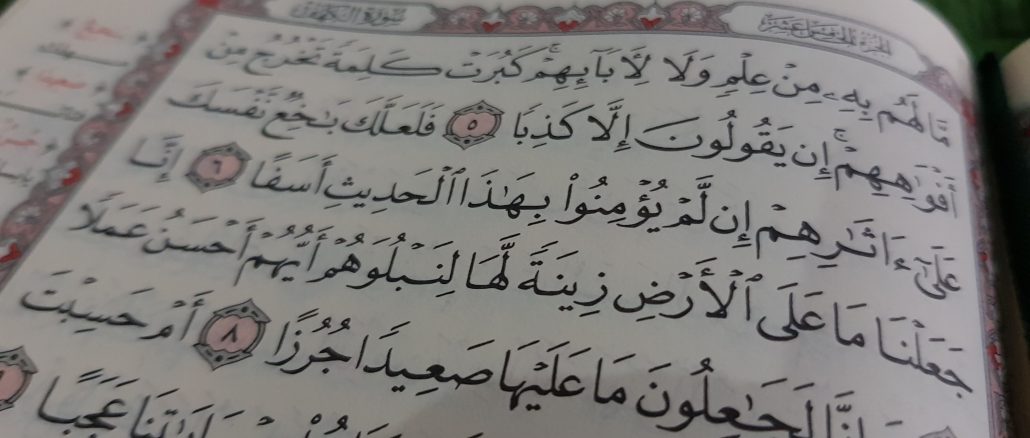 الجزء الخامس عشر
سُورَةُ الكَهْفِ
مَّا لَهُم بِهِۦ مِنْ عِلْمٍ وَلَا لِأٓبَآئِهِمْۚ كَبُرَتْ كَلِمَةً تَخْرُجُ مِنْ
أَفْوَٰهِهِمْۚ إِن يَقُولُونَ إِلَّا كَذِبًا ٥ فَلَعَلَّكَ بَـٰخِعٌ نَّفْسَكَ
عَلَىٰٓ ءَاثَـٰرِهِمْ إِن لَّمْ يُؤْمِنُوا۟ بِهَـٰذَا ٱلْحَدِيثِ أَسَفًا ٦ إِنَّا
جَعَلْنَا مَا عَلَى ٱلْأَرْضِ زِينَةً لَّهَا لِنَبْلُوَهُمْ أَيُّهُمْ أَحْسَنُ عَمَلًا
وَإِنَّا لَجَـٰعِلُونَ مَا عَلَيْهَا صَعِيدًا جُرُزًا ٨ أَمْ حَسِبْتَ
ءَايَـٰتِنَا عَجَبًا